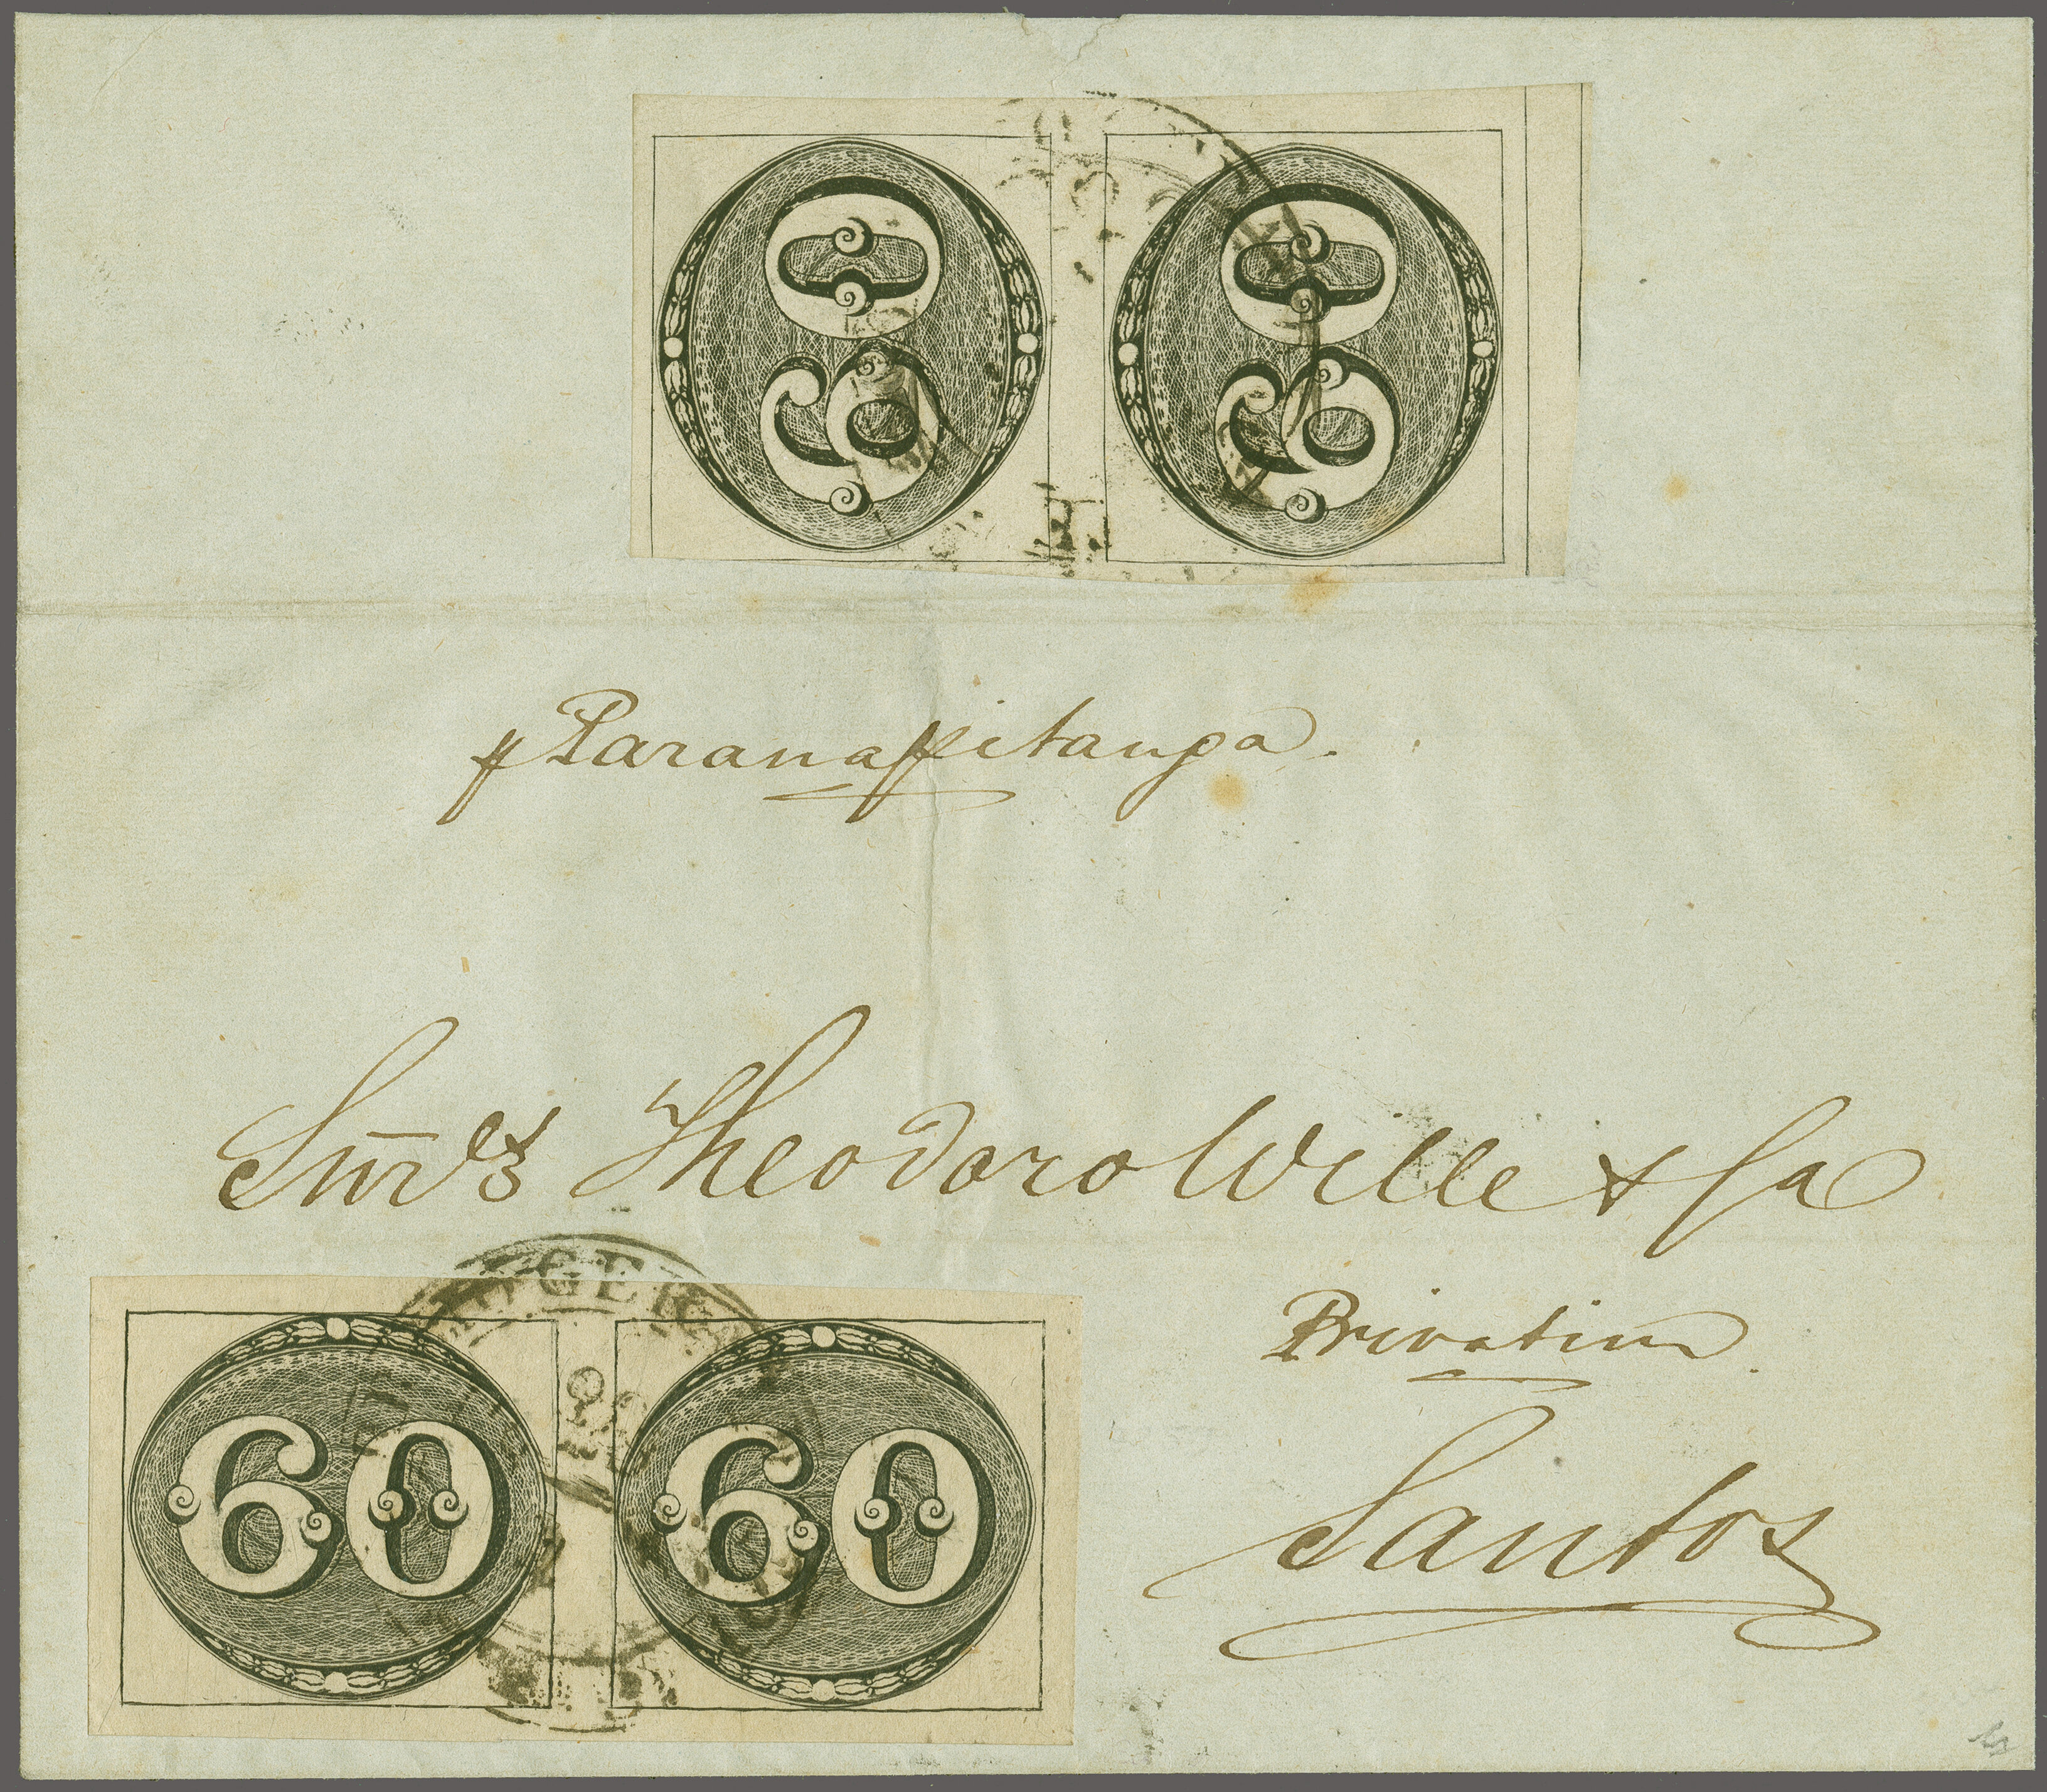 60 60
p Paranapitanga.
Snr̄es Theodoro Wille & Ca
Privatim
Santos
GER
60 60